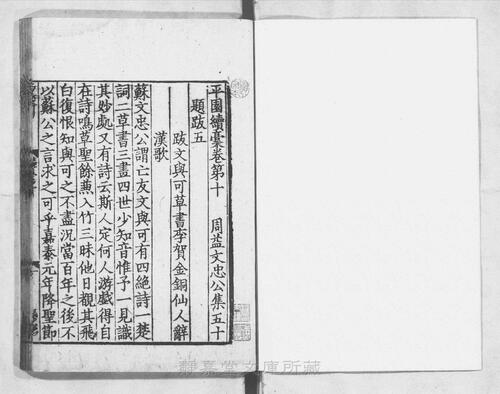 平園續藁卷第十　周益文忠公集五十
題跋五
跋文與可草書李賀金銅仙人辭
漢歌
蘇文忠公謂亡友文與可有四絶詩一楚
詞二草書三畫四世少知音惟予一見識
其妙處又有詩云斯人定何人游戲得自
在詩鳴草聖餘兼入竹三昧他日觀其飛
白復恨知與可之不盡況當百年之後不
以蘇公之言求之可乎嘉泰元年降聖節
靜嘉堂文庫所藏